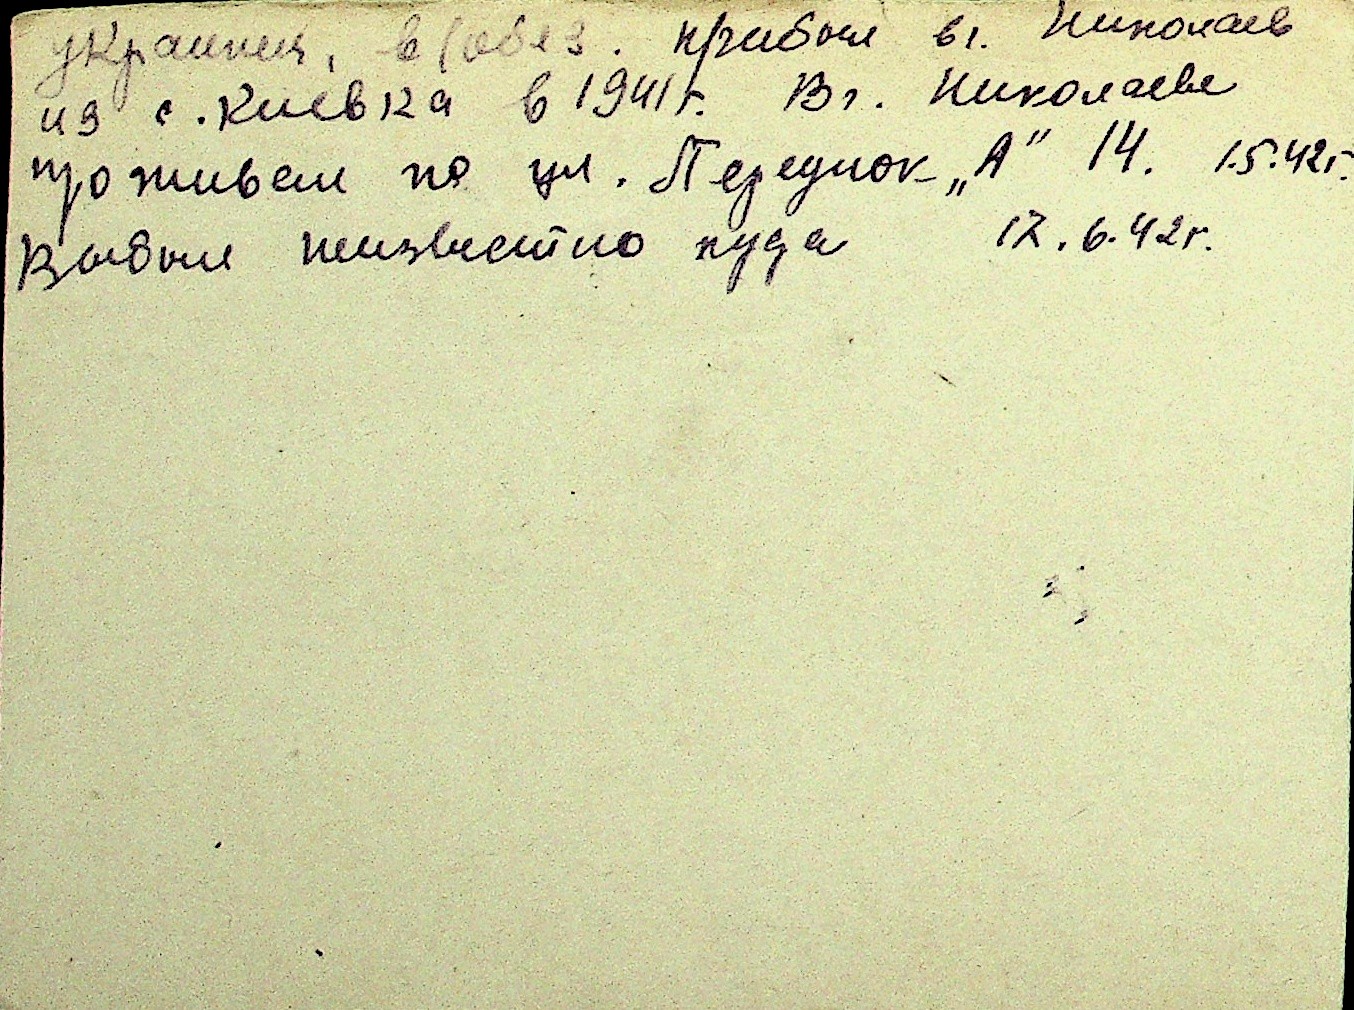 украинец, в/обяз. прибыл в г. Николаев
из с. Киевка в 1941 г. В г. Николаеве
проживал по ул. Переднюк „А" 14. 1.5.42г.
Выбыл неизвестно куда 17.6.42г.